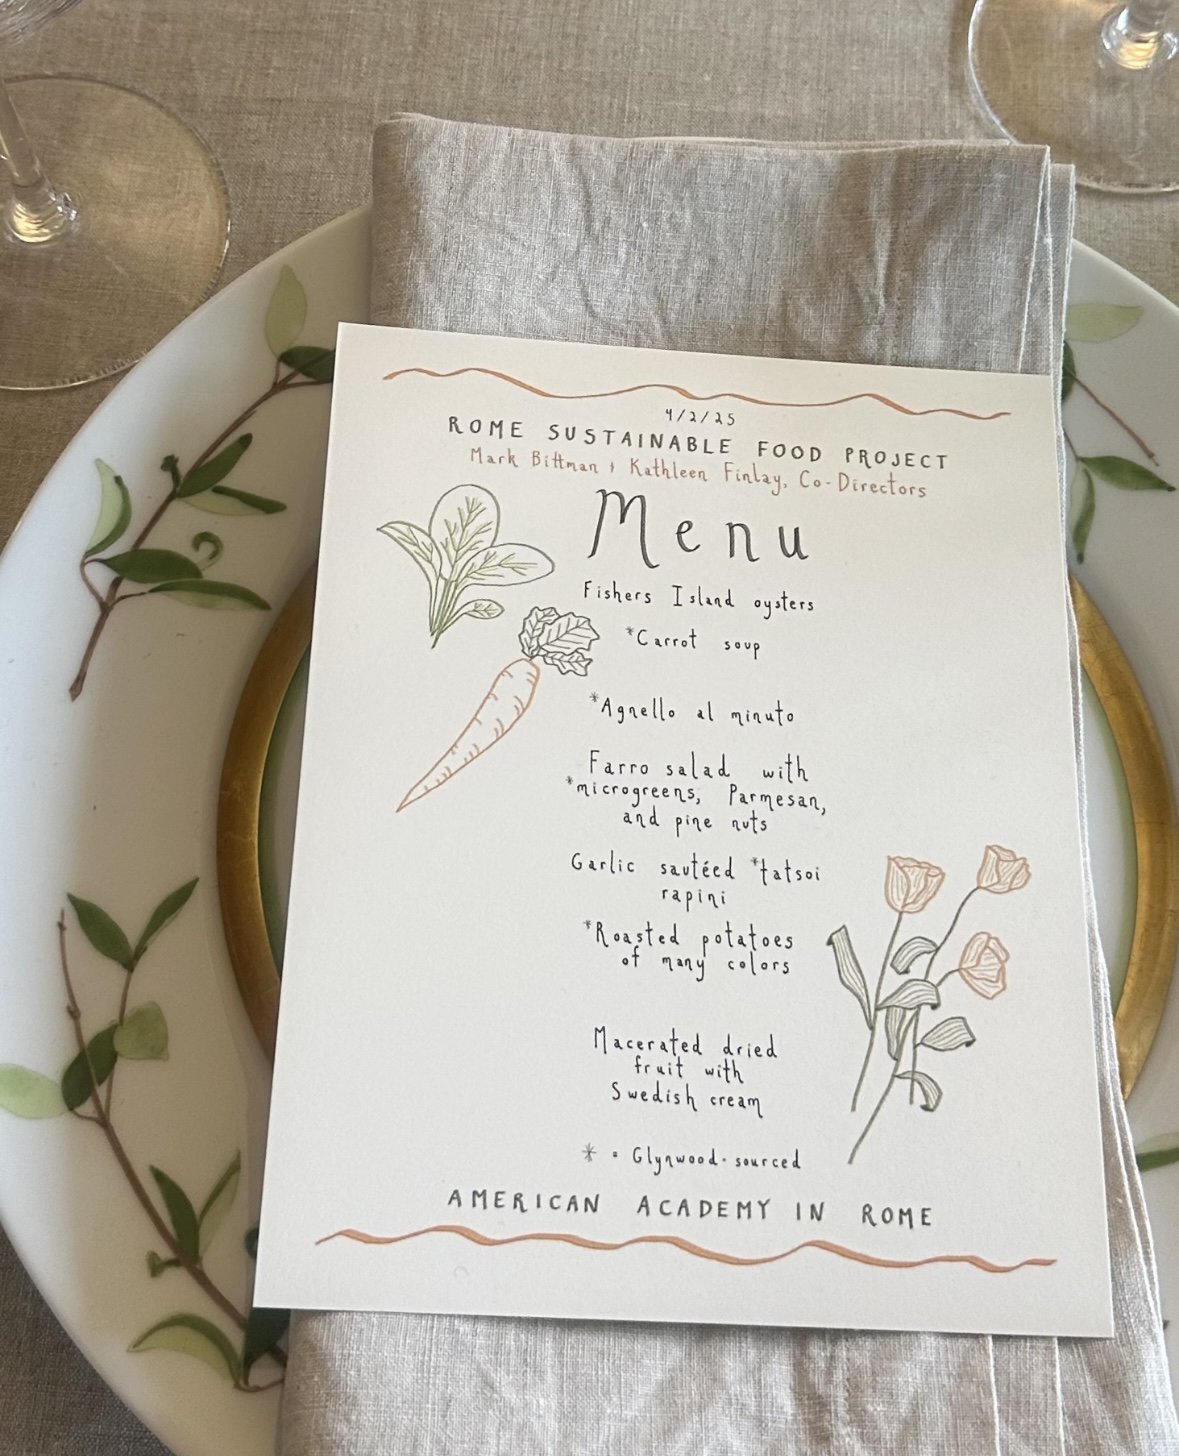 4/2/25
ROME SUSTAINABLE FOOD PROJECT
Mark Bittman & Kathleen Finlay, Co-Directors
Menu
Fishers Island oysters
*Carrot soup
*Agnello al minuto
Farro salad with
*microgreens, Parmesan,
and pine nuts
Garlic sautéed *tatsoi
rapini
*Roasted potatoes
of many colors
Macerated dried
fruit with
Swedish cream
* = Glynwood-sourced
AMERICAN ACADEMY IN ROME